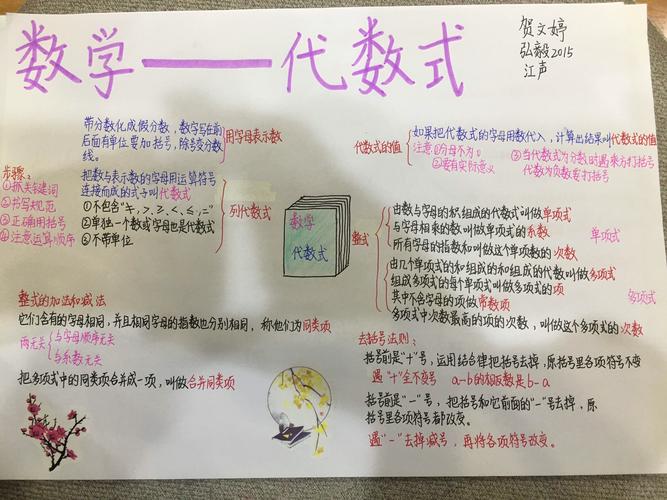 数学——代数式
贺文婷
弘毅2015
江声
带分数化成假分数,数字写在前
后面有单位要加括号,除号变分数
线。
用字母表示数
步骤:
①抓关键词
②书写规范
③正确用括号
④注意运算顺序
把数与表示数的字母用运算符号
连接而成的式子叫代数式
①不包含“≠,>,≥,<,≤,=”
②单独一个数或字母也是代数式
③不带单位
列代数式
数学
代数式
代数式的值
如果把代数式的字母用数代入,计算出结果叫代数式的值
注意①分母不为0
②要有实际意义
③当代数式为分数时遇乘方打括号
代数为负数要打括号
整式
由数与字母的积组成的代数式叫做单项式
与字母相乘的数叫做单项式的系数
所有字母的指数和叫做这个单项数的次数
单项式
由几个单项式的和组成的和组成的代数叫做多项式
组成多项式的每个单项式叫做多项式的项
其中不含字母的项做常数项
多项式中次数最高的项的次数,叫做这个多项式的次数
多项式
整式的加法和减法
它们含有的字母相同,并且相同字母的指数也分别相同,称他们为同类项
两无关
与字母顺序无关
与系数无关
把多项式中的同类项合并成一项,叫做合并同类项
去括号法则:
括号前是“+”号,运用结合律把括号去掉,原括号里各项符号不变
遇“+”全不变号 a-b的相反数是b-a
括号前是“-”号,把括号和它前面的“-”号去掉,原
括号里各项符号都改变。
遇“-”去掉减号,再将各项符号改变。